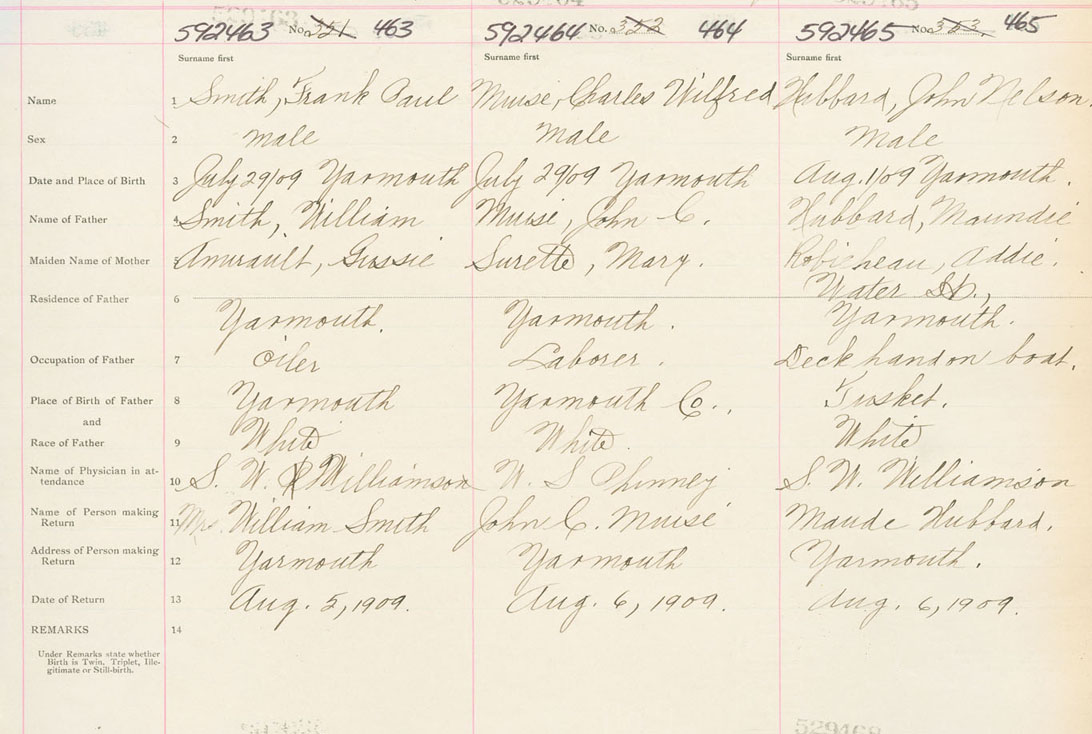 592463 No. 351 463 592464 No. 352 464 592465 No. 353. 465
Surname first Surname first Surname first
Name 1 Smith, Frank Paul Muise, Charles Wilfred Hubbard, John Nelson.
Sex 2 male Male Male
Date and Place of Birth 3 July 29/09 Yarmouth July 29/09 Yarmouth Aug. 1/09 Yarmouth.
Name of Father 4 Smith, William Muise, John C. Hubbard, Maundie
Maiden Name of Mother 5 Amirault, Gussie Surette, Mary. Robicheau, Addie.
Water St.,
Residence of Father 6 Yarmouth. Yarmouth. Yarmouth.
Occupation of Father 7 Oiler Laborer. Deck hand on boat.
Place of Birth of Father 8 Yarmouth Yarmouth Co., Tusket.
and
Race of Father 9 White White. White
Name of Physician in at-
tendance 10 S. W. Williamson W. S Phinney S. W. Williamson
Name of Person making
Return 11 Mrs. William Smith John C. Muise Maude Hubbard.
Address of Person making
Return 12 Yarmouth Yarmouth Yarmouth.
Date of Return 13 Aug. 5, 1909. Aug. 6, 1909. Aug. 6, 1909.
REMARKS 14
Under Remarks state whether
Birth is Twin, Triplet, Ille-
gitimate or Still-birth.